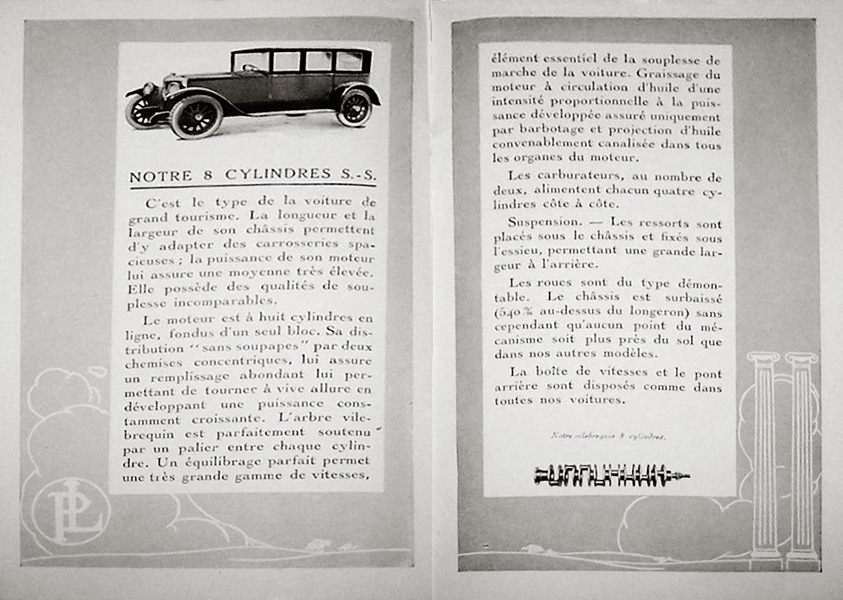 NOTRE 8 CYLINDRES S.-S.
C'est le type de la voiture de
grand tourisme. La longueur et la
largeur de son châssis permettent
d'y adapter des carrosseries spa-
cieuses ; la puissance de son moteur
lui assure une moyenne très élevée.
Elle possède des qualités de sou-
plesse incomparables.
Le moteur est à huit cylindres en
ligne, fondus d'un seul bloc. Sa dis-
tribution "sans soupapes" par deux
chemises concentriques, lui assure
un remplissage abondant lui per-
mettant de tourner à vive allure en
développant une puissance cons-
tamment croissante. L'arbre vile-
brequin est parfaitement soutenu
par un palier entre chaque cylin-
dre. Un équilibrage parfait permet
une très grande gamme de vitesses,
PL
élément essentiel de la souplesse de
marche de la voiture. Graissage du
moteur à circulation d'huile d'une
intensité proportionnelle à la puis-
sance développée assuré uniquement
par barbotage et projection d'huile
convenablement canalisée dans tous
les organes du moteur.
Les carburateurs, au nombre de
deux, alimentent chacun quatre cy-
lindres côte à côte.
Suspension. — Les ressorts sont
placés sous le châssis et fixés sous
l'essieu, permettant une grande lar-
geur à l'arrière.
Les roues sont du type démon-
table. Le châssis est surbaissé
(540 % au-dessus du longeron) sans
cependant qu'aucun point du mé-
canisme soit plus près du sol que
dans nos autres modèles.
La boîte de vitesses et le pont
arrière sont disposés comme dans
toutes nos voitures.
Notre vilebrequin 8 cylindres.